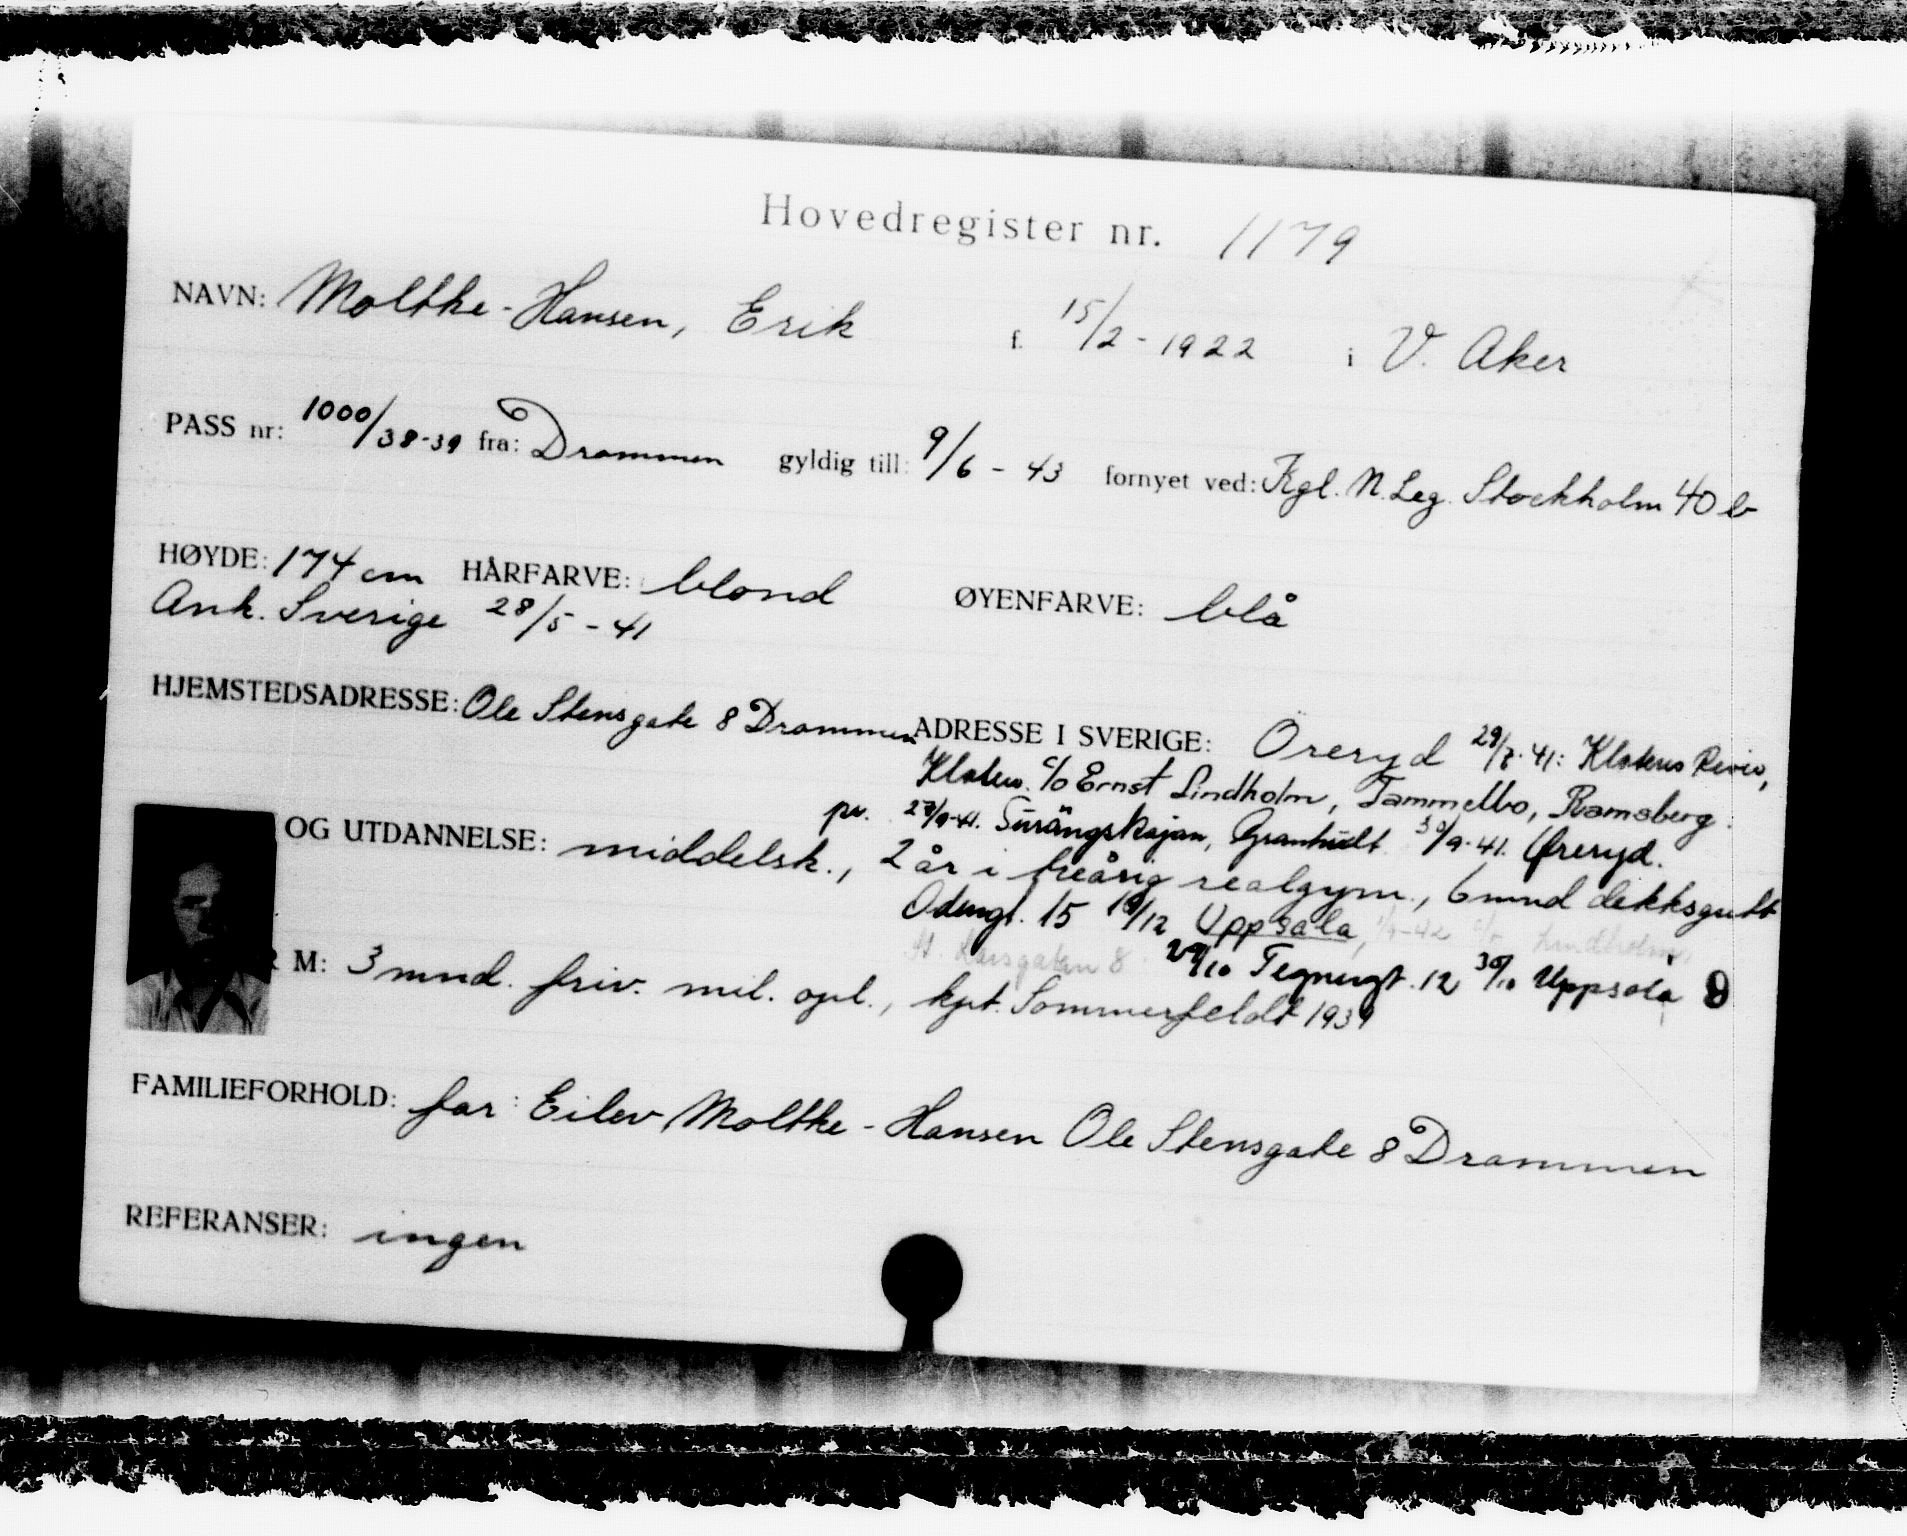 Hovedregister nr. 1179
NAVN: Moltke-Hansen, Erik f. 15/2-1922 i V. Aker
PASS nr: 1000/38-39 fra: Drammen gyldig till: 9/6-43 fornyet ved: Kgl. N. Leg. Stockholm 40 b
HØYDE: 174 cm HÅRFARVE: blond ØYENFARVE: blå
Ank. Sverige 28/5-41
HJEMSTEDSADRESSE: Ole Stensgate 8 Drammen ADRESSE I SVERIGE: Öreryd 29/7-41: Klotens Revir,
Kloten. c/o Ernst Lindholm, Tammelbo, Ramsberg.
pr. 27/9-41. Surängskojan, Granhult 30/9-41. Øreryd.
OG UTDANNELSE: middelsk., 2 år i treårig realgym., 6 mnd dekksgutt
Odengt. 15 18/12 Uppsala, -42 Lindholm
Larsgatan 8 29/10 Tegnergt. 12 30/10 Uppsala
R M: 3 mnd. friv. mil. opl., kpt. Sommerfeldt 1939
FAMILIEFORHOLD: far: Eilev Moltke-Hansen Ole Stensgate 8 Drammen
REFERANSER: ingen